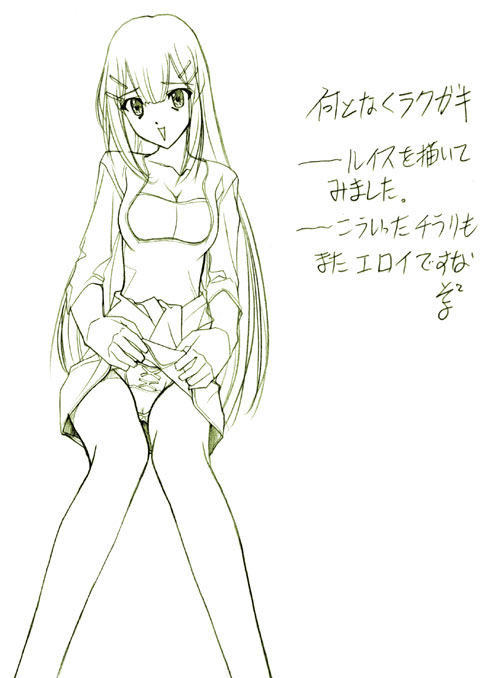 何となくラクガキ
──ルイスを描いて
みました。
──こういったチラリも
またエロイですな